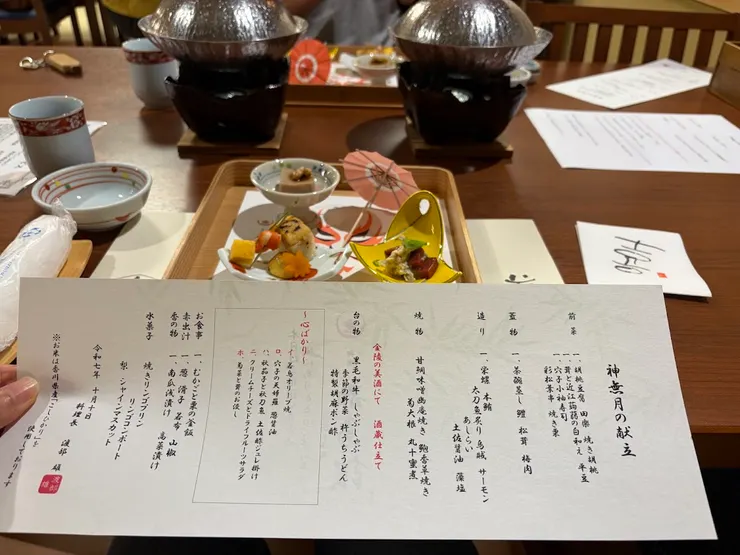 神無月の献立
前菜
一、胡桃豆腐 田楽 焼き胡桃
一、茸と近江蒟蒻の白和え 半豆
一、穴子小袖寿司
彩松葉串 焼き栗
蓋物
一、茶碗蒸し 鱧 松茸 梅肉
造り
一、栄螺 本鮪
太刀魚炙り 烏賊 サーモン
あしらい
土佐醤油 藻塩
焼物
甘鯛味噌幽庵焼き 鮑香草焼き
菊大根 丸十蜜煮
金陵の美酒にて 酒蔵仕立て
台の物
黒毛和牛 しゃぶしゃぶ
季節の野菜 杵うちうどん
特製胡麻ポン酢
～心ばかり～
イ、若鳥オリーブ焼
ロ、穴子の天婦羅 葱醤油
ハ、秋茄子と秋刀魚 土佐酢ジュレ掛け
ニ、クリームチーズとドライフルーツサラダ
ホ、葛菜と茸のお浸し
お食事 一、むかごと栗の釜飯
赤出汁 一、葱 滑子 若布 山椒
香の物 一、南瓜浅漬け 高菜漬け
水菓子
焼きリンゴプリン
リンゴコンポート
梨 シャインマスカット
令和七年 十月十日
料理長 渡部 雄
※お米は香川県産「こしひかり」を
使用しております